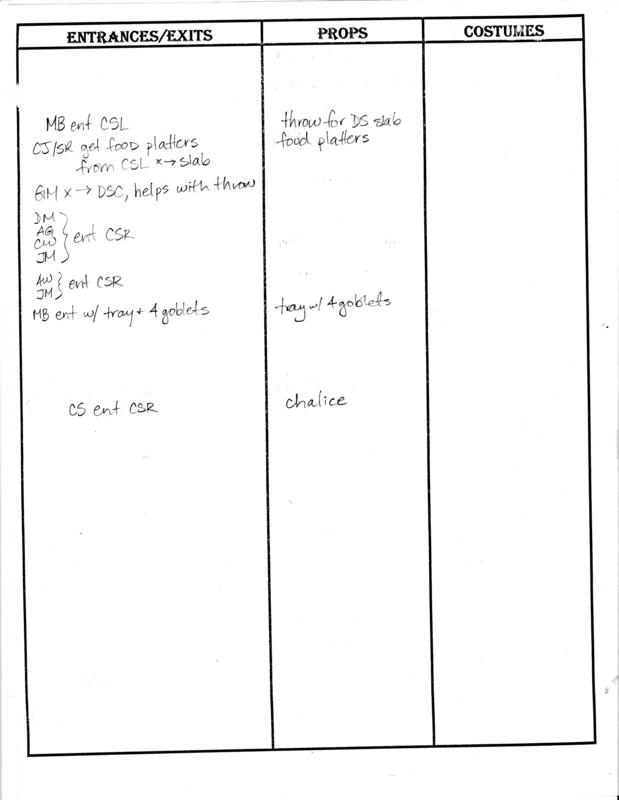 ENTRANCES/EXITS
PROPS
COSTUMES
MB ent CSL
CJ/SR get food platters
from CSL x→ slab
GM x → DSC, helps with throw
DM
AG
CW
JM
} ent CSR
AW
JM
} ent CSR
MB ent w/ tray + 4 goblets
CS ent CSR
throw for DS slab
food platters
tray w/ 4 goblets
chalice